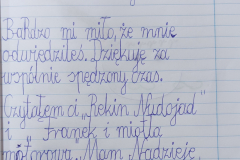 Bardzo mi miło, że mnie
odwiedziłeś. Dziękuję za
wspólnie spędzony czas.
Czytałem ci „Rekin Nudojad"
i Franek i miotła
motorowa". Mam Nadzieję,